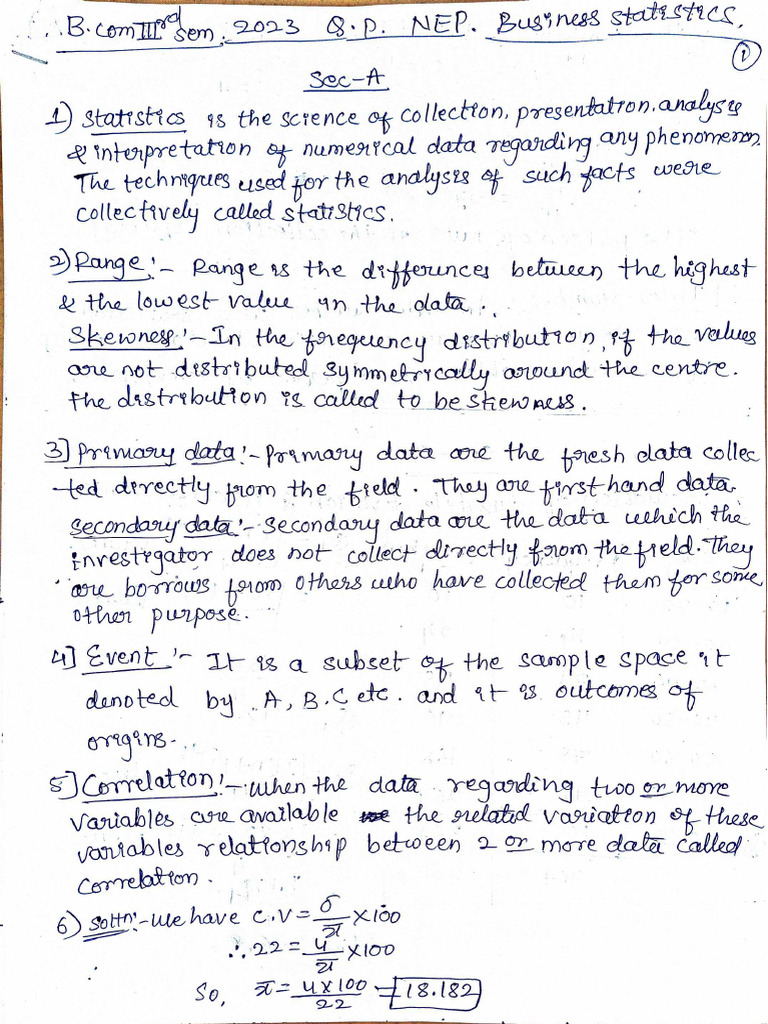 B.com IIIrd sem, 2023 Q.P. NEP. Business statistics.
1
Sec-A
1) Statistics is the science of collection, presentation, analysis
& interpretation of numerical data regarding any phenomenon.
The techniques used for the analysis of such facts were
collectively called statistics.
2) Range:- Range is the differences between the highest
& the lowest value in the data.
Skewness:- In the frequency distribution, if the values
are not distributed symmetrically around the centre.
the distribution is called to be skewness.
3] Primary data:- Primary data are the fresh data collec
-ted directly from the field. They are first hand data.
Secondary data:- Secondary data are the data which the
investigator does not collect directly from the field. They
are borrows from others who have collected them for some
other purpose.
4] Event:- It is a subset of the sample space it
denoted by A, B, C etc. and it is outcomes of
origins.
5] Correlation:- when the data regarding two or more
variables are available the related variation of these
variables relationship between 2 or more data called
correlation.
6) Soltn:- we have C.V = σ/x̄ × 100
∴ 22 = 4/x̄ × 100
So, x̄ = 4×100/22 = 18.182